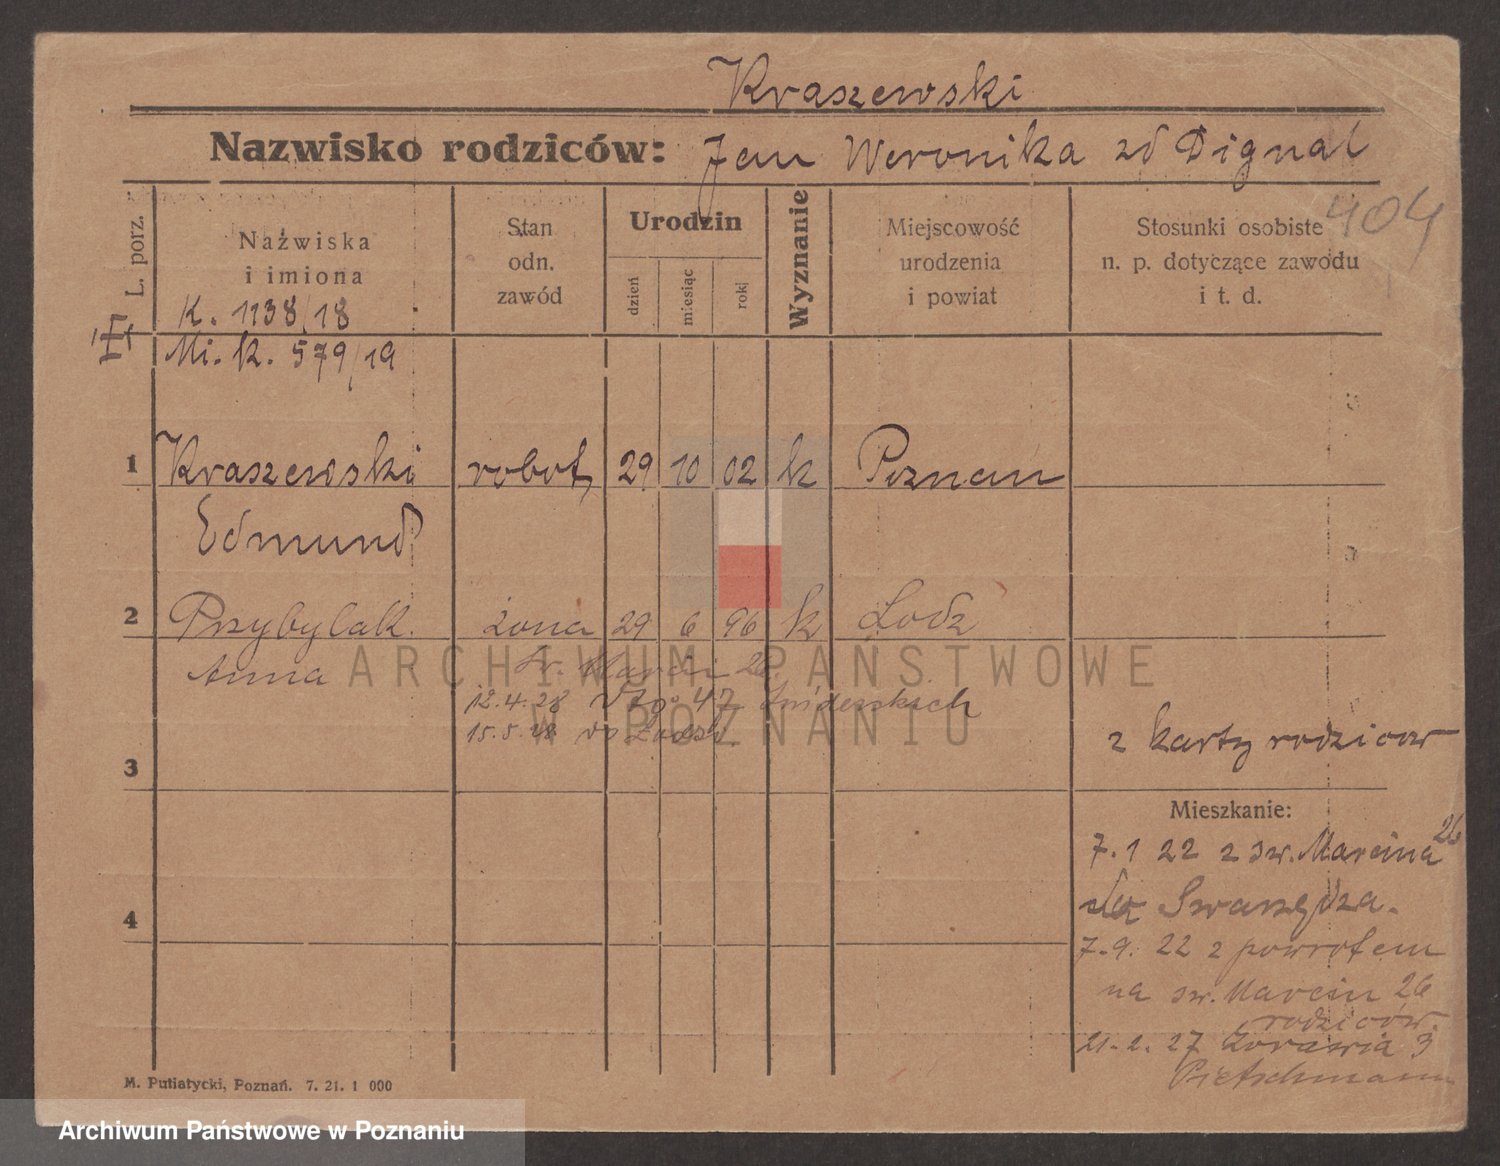 Kraszewski
Nazwisko rodziców: Jan Weronika zd Dignal
404
L. porz.
Nazwiska
i imiona
Stan
odn.
zawód
Urodzin
dzień
miesiąc
rok
Wyznanie
Miejscowość
urodzenia
i powiat
Stosunki osobiste
n. p. dotyczące zawodu
i t. d.
K. 1138/18
Mi. K. 579/19
1 Kraszewski robot, 29 10 02 k Poznań
Edmund
2 Przybylak. żona 29 6 96 k Łodź
Anna św. Marcin 26.
12.4.28 47
15.5.28 do
z karty rodziców
3
Mieszkanie:
7.1 22 z św. Marcina 26
do Swarzędza.
4
7.9. 22 z powrotem
na św. Marcin 26
rodziców.
21.2.27 Żórawia 3
Pietschmann
M. Putiatycki, Poznań. 7. 21. 1 000
ARCHIWUM PAŃSTWOWE
W POZNANIU
Archiwum Państwowe w Poznaniu